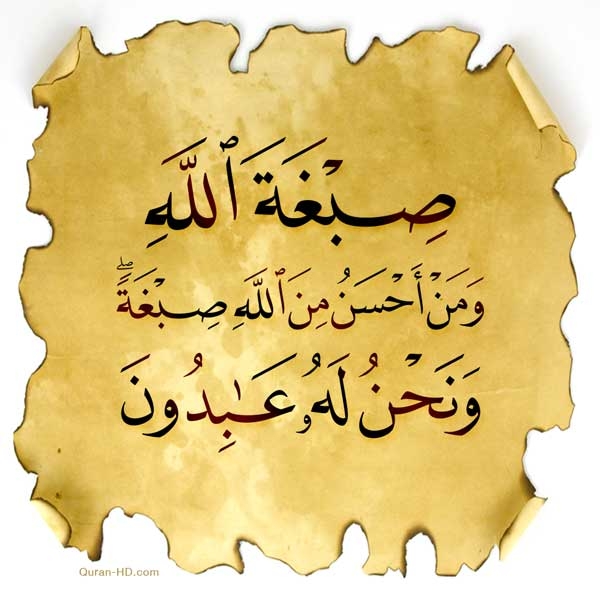 صِبْغَةَ ٱللَّهِ
وَمَنْ أَحْسَنُ مِنَ ٱللَّهِ صِبْغَةًۖ
وَنَحْنُ لَهُۥ عَـٰبِدُونَ
Quran-HD.com